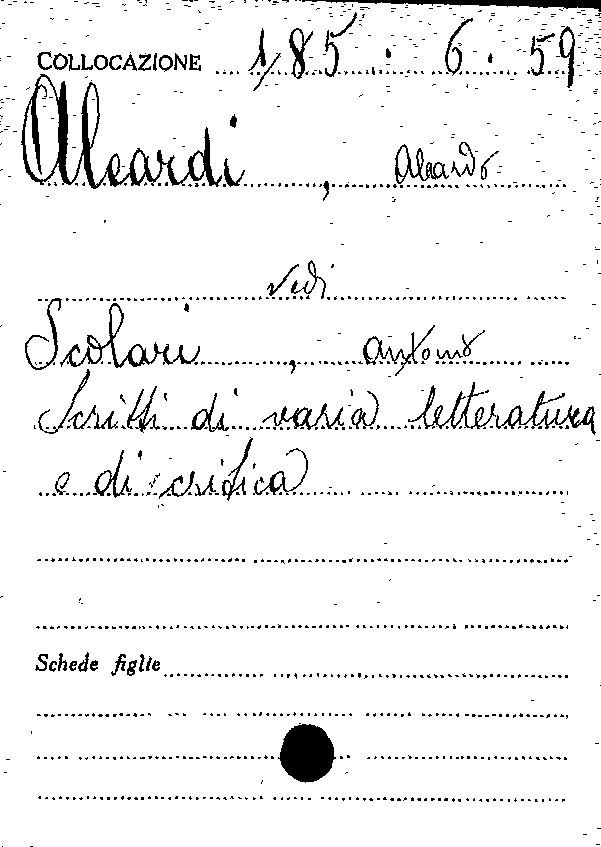 COLLOCAZIONE 185. 6. 59
Aleardi, Aleardo
vedi
Scolari, Antonio
Scritti di varia letteratura
e di critica
Schede figlie